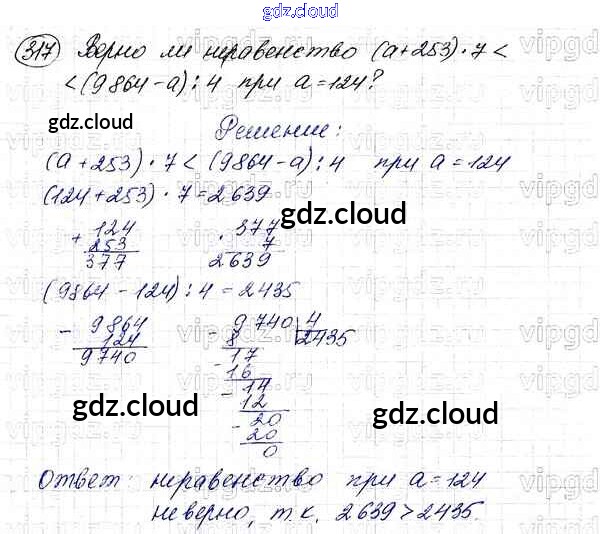 gdz.cloud
317 Верно ли неравенство (a+253)·7<
<(9864-a):4 при a=124?
gdz.cloud
Решение:
(a+253)·7<(9864-a):4 при a=124
(124+253)·7=2639
gdz.cloud
+ 124 · 377
253 7
377 2639
(9864-124):4=2435
- 9864 - 9740 4
124 8 2435
9740 - 17
16
- 14
12
- 20
20
0
gdz.cloud gdz.cloud
Ответ: неравенство при a=124
неверно, т.к. 2639>2435.
gdz.cloud